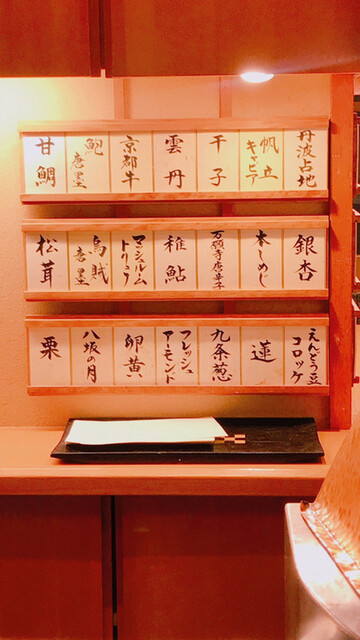 丹波占地
帆立キャビア
干子
雲丹
京都牛
鮑唐墨
甘鯛
銀杏
本しめじ
万願寺唐辛子
稚鮎
マッシュルームトリュフ
烏賊唐墨
松茸
えんどう豆コロッケ
蓮
九条葱
フレッシュアーモンド
卵黄
八坂の月
栗